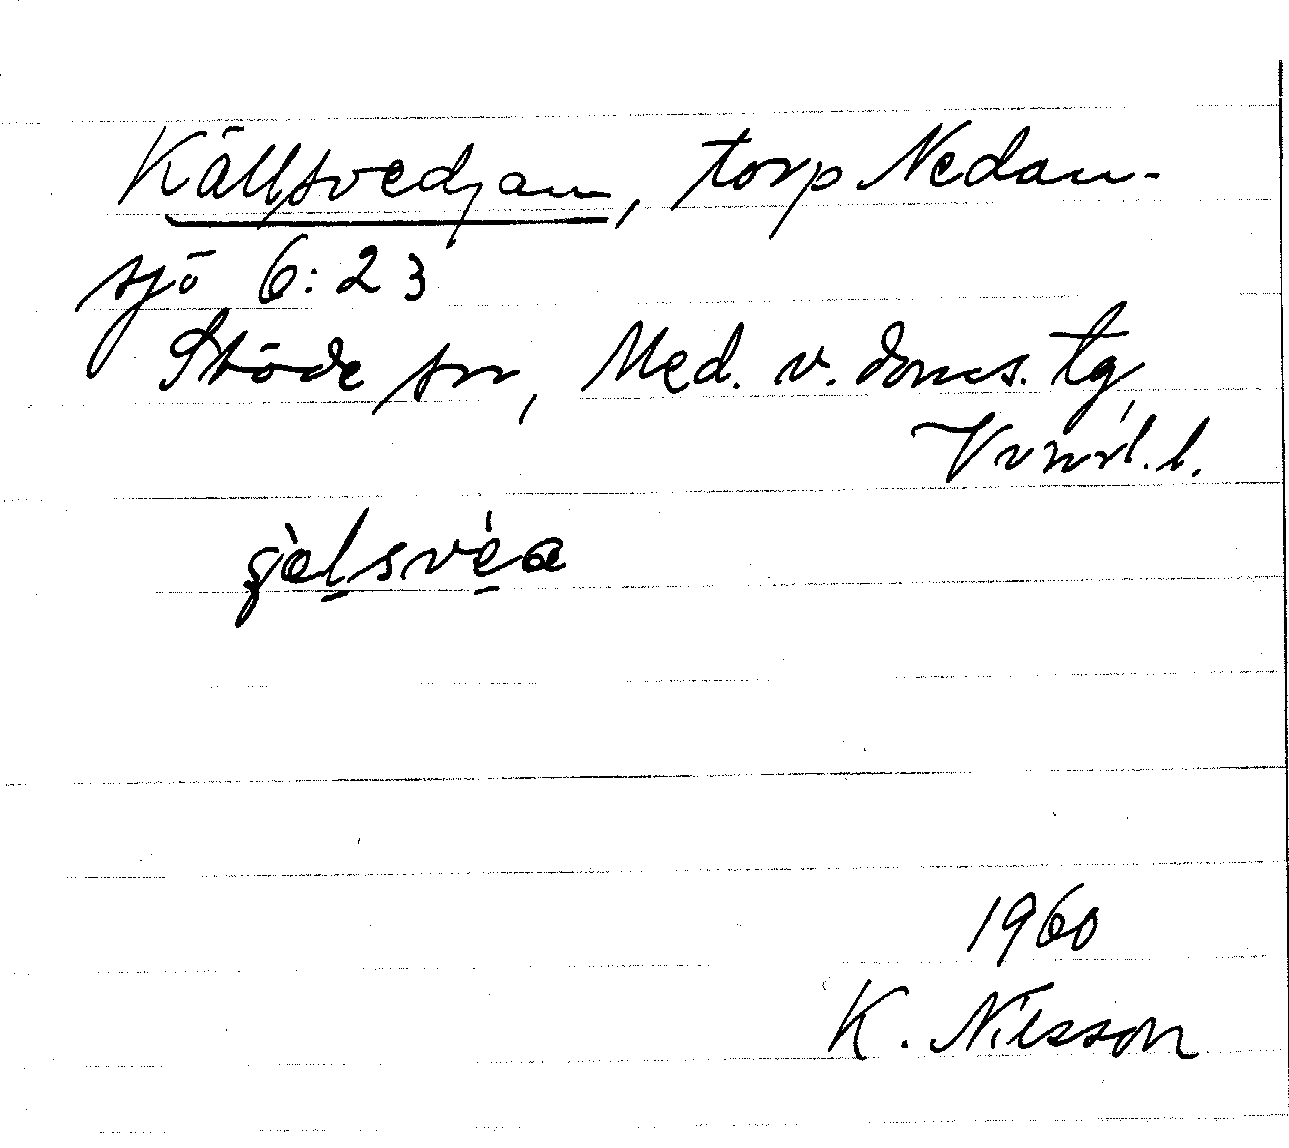 Källsvedjan, torp Nedan-
sjö 6:23
Stöde sn, Med. v. doms. tg,
Vvnrl. l.
1960
K. Nilsson